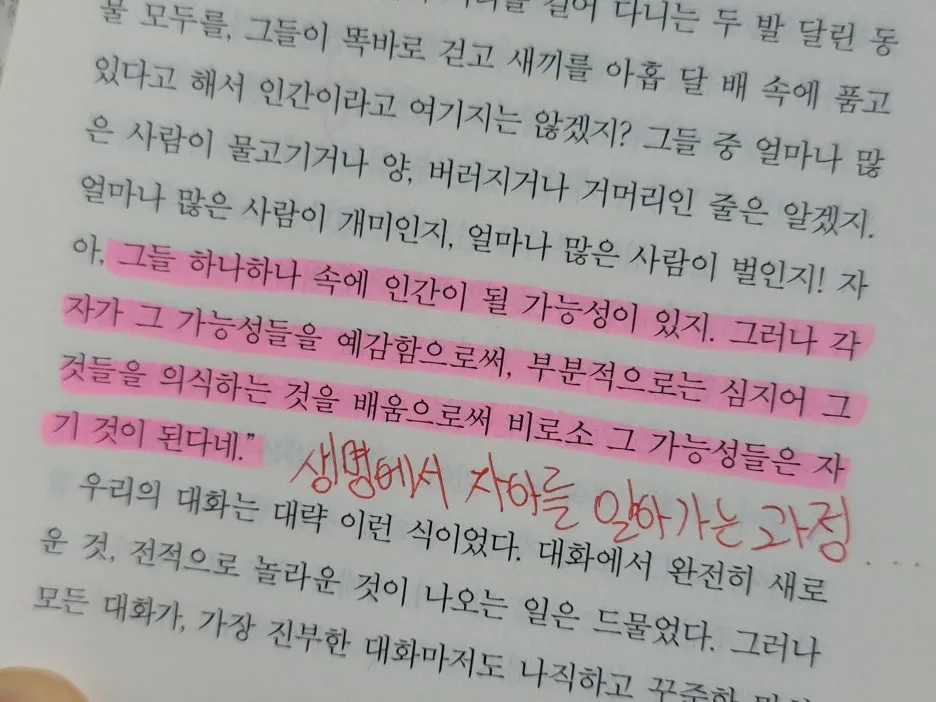 걸어 다니는 두 발 달린 동
물 모두를, 그들이 똑바로 걷고 새끼를 아홉 달 배 속에 품고
있다고 해서 인간이라고 여기지는 않겠지? 그들 중 얼마나 많
은 사람이 물고기거나 양, 버러지거나 거머리인 줄은 알겠지.
얼마나 많은 사람이 개미인지, 얼마나 많은 사람이 벌인지! 자
아, 그들 하나하나 속에 인간이 될 가능성이 있지. 그러나 각
자가 그 가능성들을 예감함으로써, 부분적으로는 심지어 그
것들을 의식하는 것을 배움으로써 비로소 그 가능성들은 자
기 것이 된다네.”
생명에서 자아를 알아가는 과정....
우리의 대화는 대략 이런 식이었다. 대화에서 완전히 새로
운 것, 전적으로 놀라운 것이 나오는 일은 드물었다. 그러나
모든 대화가, 가장 진부한 대화마저도 나직하고 꾸준한